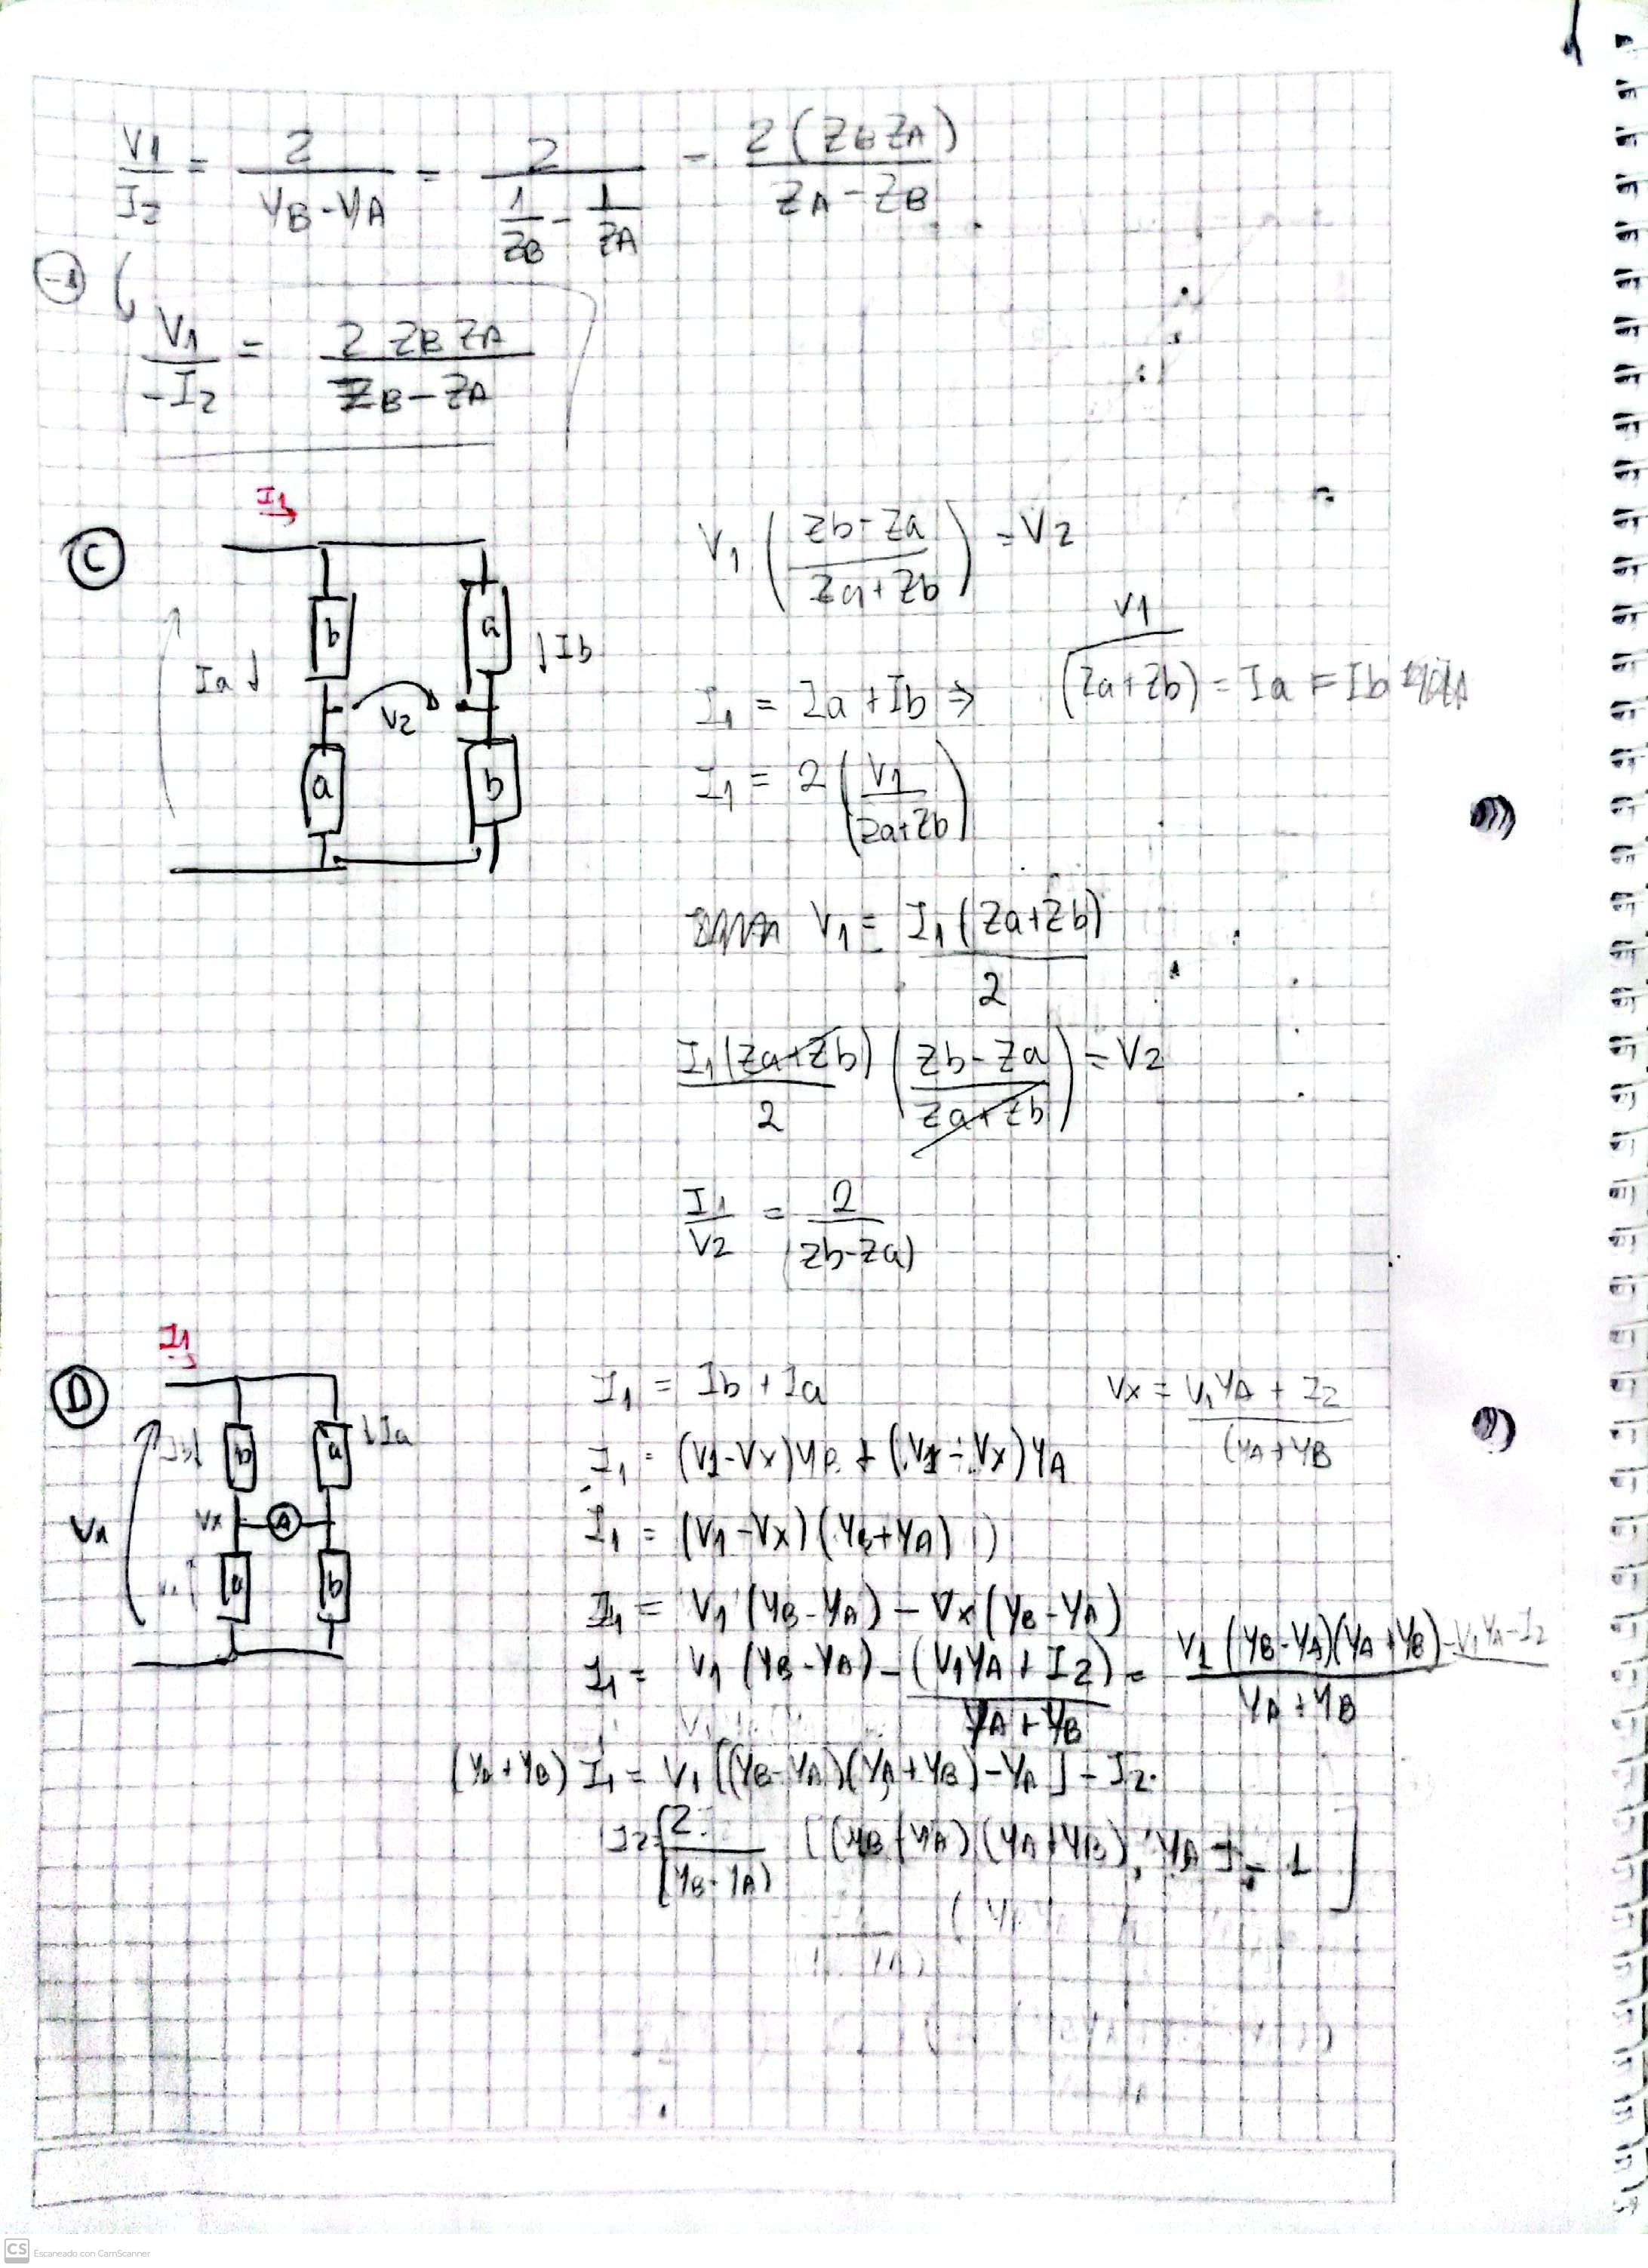 V1/I2 = 2/(YB-YA) = 2/(1/ZB - 1/ZA) = 2(ZBZA)/(ZA-ZB)
-1
V1/-I2 = 2 ZB ZA/(ZB-ZA)
I1
C
b a
Ia ↓ ↓Ib
V2
a b
V1 ((Zb-Za)/(Za+Zb)) = V2
I1 = Ia + Ib ⇒ V1/(Za+Zb) = Ia = Ib
I1 = 2 (V1/(Za+Zb))
V1 = I1(Za+Zb)/2
I1(Za+Zb)/2 ((Zb-Za)/(Za+Zb)) = V2
I1/V2 = 2/(Zb-Za)
I1
D
Ib↓ b a ↓Ia
Vx A
V1
a b
I1 = Ib + Ia
Vx = (V1YA + I2)/(YA+YB
I1 = (V1-Vx)YB + (V1-Vx)YA
I1 = (V1-Vx)(YB+YA)
I1 = V1 (YB-YA) - Vx(YB-YA)
I1 = V1 (YB-YA) - (V1YA + I2)/(YA+YB) = (V1 (YB-YA)(YA+YB) - V1YA - I2)/(YA+YB)
(YA+YB) I1 = V1 [(YB-YA)(YA+YB)-YA] - I2
I2 [2/(YB-YA) [(YB+YA)(YA+YB) YA] - 1]
CS Escaneado con CamScanner